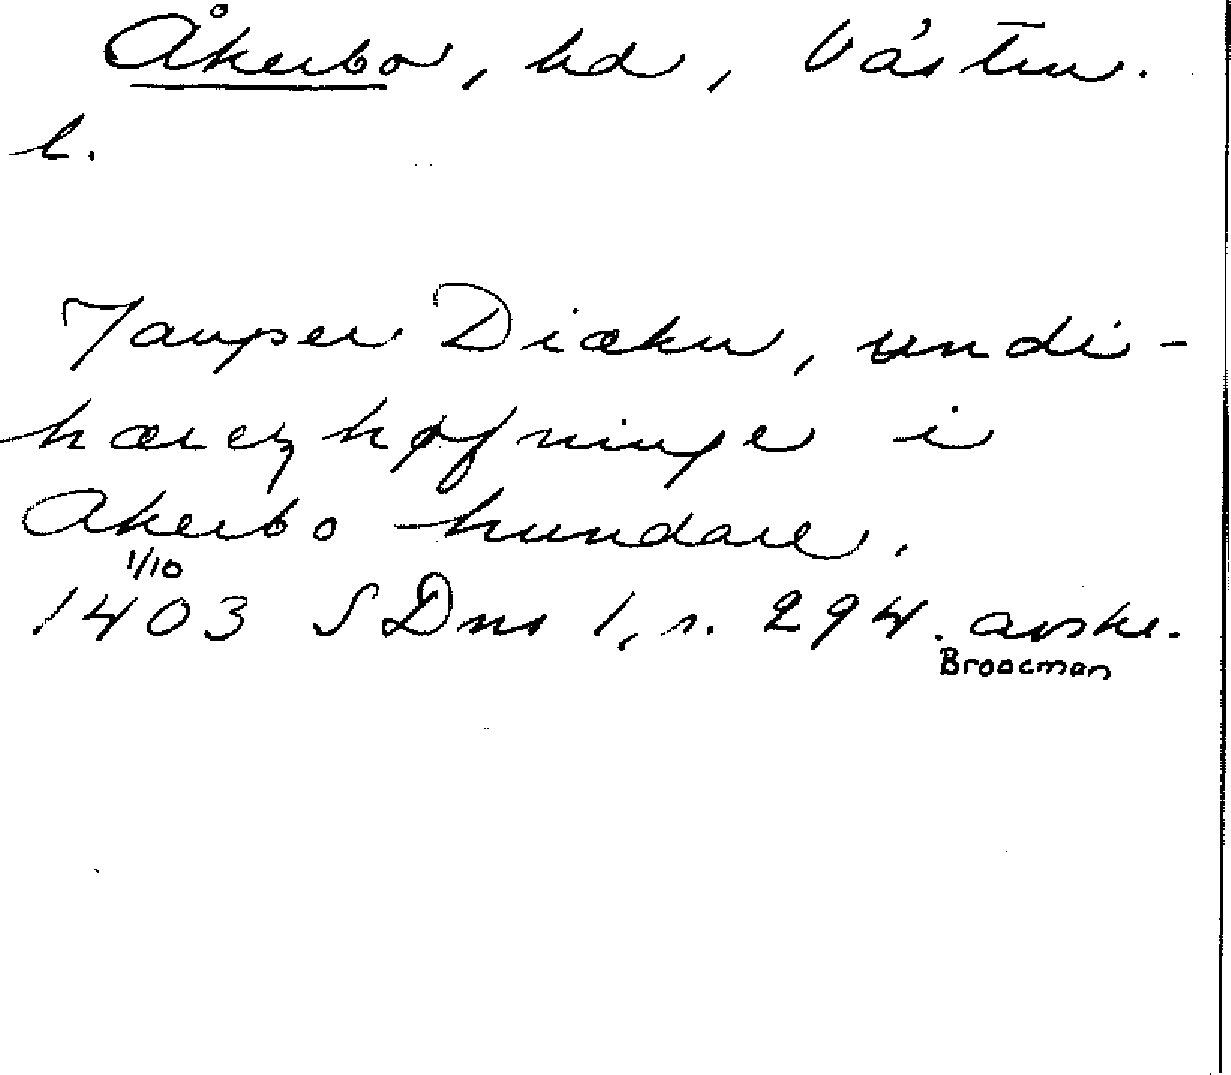 Åkerbo, hd, Västm.
l.
Jauper Diækn, undi-
hæretzhøfninge i
Akerbo hundare.
1/10
1403 SDns 1, s. 294. avskr.
Broocman